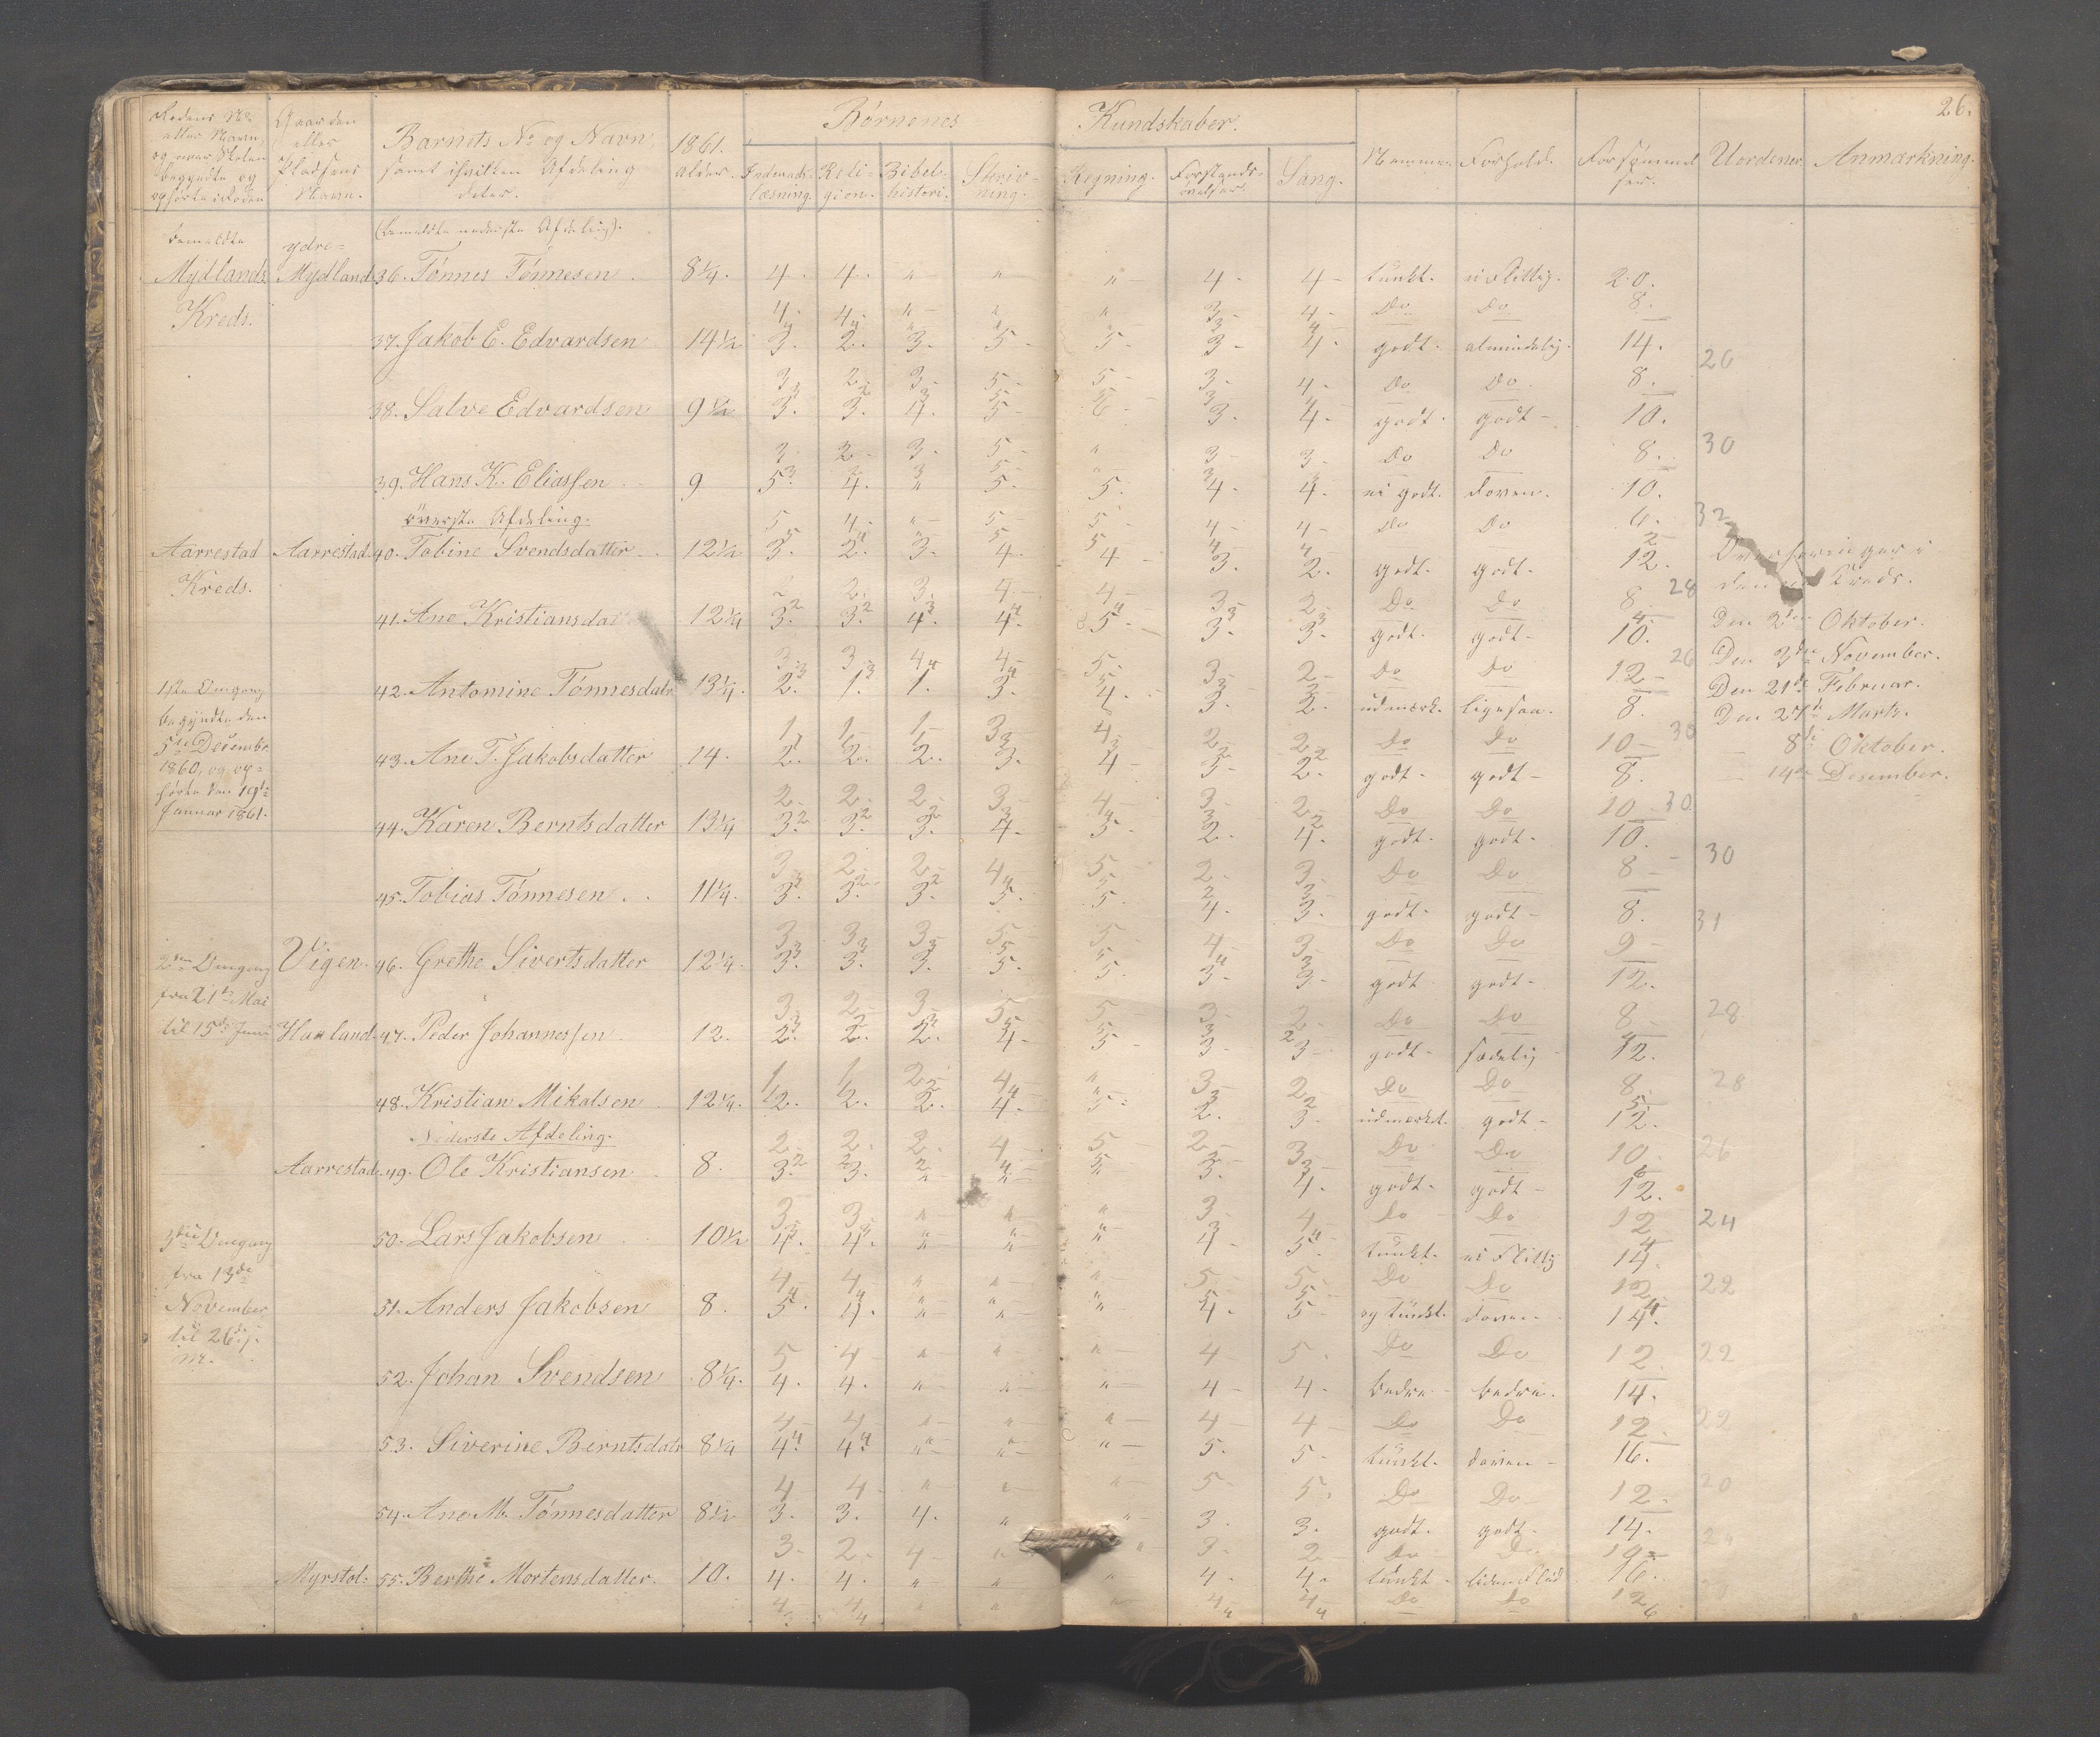 26.
Børnenes Kundskaber.
Rodens No eller Navn, og naar Skolen begyndte og ophørte i Roden
Gaarden eller Pladsens Navn.
Barnets No og Navn, samt ihvilken Afdeling det er.
1861. alder.
Indenads-læsning. Religion. Bibel-historie. Skrivning. Regning. Forstands-øvelser. Sang. Nemme. Forhold. Forsømmelser. Uordener. Anmærkning.
(bemeldte nederste Afdeling).
bemeldte ydre-
Mydlands Mydland 36. Tønnes Tønnesen 8 1/4. 4. 4. " " " 4 4 tungt. ei flittig. 20.
4 4 " " " 3 4 Do Do 8.
Kreds.
37. Jakob E. Edvardsen 14 1/2 3. 2. 3. 5 5 3 4 godt. almindelig. 14.
3 2 3 5 5 3 4 Do Do 8. 26
38. Salve Edvardsen 9 1/2 3. 3. 4. 5 3. 4 godt godt 10.
3 2 3 5 " 3 3 Do Do 8. 30
39. Hans K. Eliassen 9 5. 4. " 5. 5. 4. 4. ei godt. doven. 10.
5 4 " 5 5 4 4 Do Do 6. 32
øverste Afdeling.
Aarrestad Aarrestad 40. Tobine Svendsdatter 12 1/2 3. 2. 3. 4. 4 3. 2. godt. godt. 12.
Kreds.
2 2 3 4 4 3 2 Do Do 8 28
41. Ane Kristiansda 12 1/4 3. 3. 4. 4. 5. 3. 3. godt. godt. 10.
3 3 4 4 5 3 2 Do Do 12 26
42. Antomine Tønnesdatr 13 1/4. 2. 1. 1. 3. 4. 3. 2. udmærk. ligesaa. 8.
1 1 1 3 4 2 2 Do Do 10 30
43. Ane T. Jakobsdatter 14. 2. 2. 2. 3. 4 3 2. godt. godt 8.
2 2 2 3 4 3 2 Do Do 10 30
44. Karen Berntsdatter 13 1/4 3. 3. 3. 4. 5. 2. 4. godt. godt. 10.
3 2 2 4 5 2 3 Do Do 8 30
45. Tobias Tønnesen 11 1/4. 3. 3. 3. 5. 5. 4. 3. godt. godt 8.
3 3 3 5 5 4 3 Do Do 9 31
Vigen. 46. Grethe Sivertsdatter 12 1/4. 3. 3. 3. 5. 5. 3. 3. godt godt. 12.
3 2 3 5 5 3 2 Do Do 8 28
Haaland. 47. Peder Johannessen 12. 2. 2. 2. 4. 5 3. 3 godt sædelig 12.
1 1 2 4 " 3 2 Do Do 8 28
48. Kristian Mikalsen 12 1/4. 2. 2. 2. 4. 5. 2. 3. udmærket. godt 12.
2 2 2 4 5 2 3 Do Do 10 26
Nederste Afdeling.
Aarrestad 49. Ole Kristiansen 8. 3. 3. " " " 3. 4. godt. godt 12.
3 3 " " " 3 4 Do Do 12 24
50. Lars Jakobsen 10 1/2 4. 4. " " " 4 5 tungt. ei flittig 14.
4 4 " " " 5 5 Do Do 12 22
51. Anders Jakobsen 8. 5. 4. " " " 4. 5 og tungt. doven 14.
5 4 " " " 4 5 Do Do 12 22
52. Johan Svendsen 8 1/4. 4. 4. " " " 4 4. bedre bedre. 14.
4 4 " " " 4 4 Do Do 12 22
53. Siverine Berntsdatr 8 1/4 4. 4. " " " 5. 5. tungt. doven 16.
4 4 " " " 5 5 Do Do 12 20
54. Ane M. Tønnesdatter 8 1/2 3. 3. 4. " " 3. 3. godt. godt. 14.
3 2 4 " " 3 2 Do Do
Myrstol. 55. Berthe Mortensdatter. 10. 4. 4. " " " 4. 4. tungt 16.
4 4 " " " 4 4 Do Do 12
1ste Omgang
begyndte den
5te Desembr
1860, og op-
hørte den 19de
Januar 1861.
2den Omgang
fra 21de Mai
til 15de Juni
3die Omgang
fra 13de
November
til 26de j.
M.
Overhøringer i
den Kreds.
Den 2den Oktober.
Den 3die November.
Den 21de Februar.
Den 27de Marts.
8de Oktober.
14de Desember.